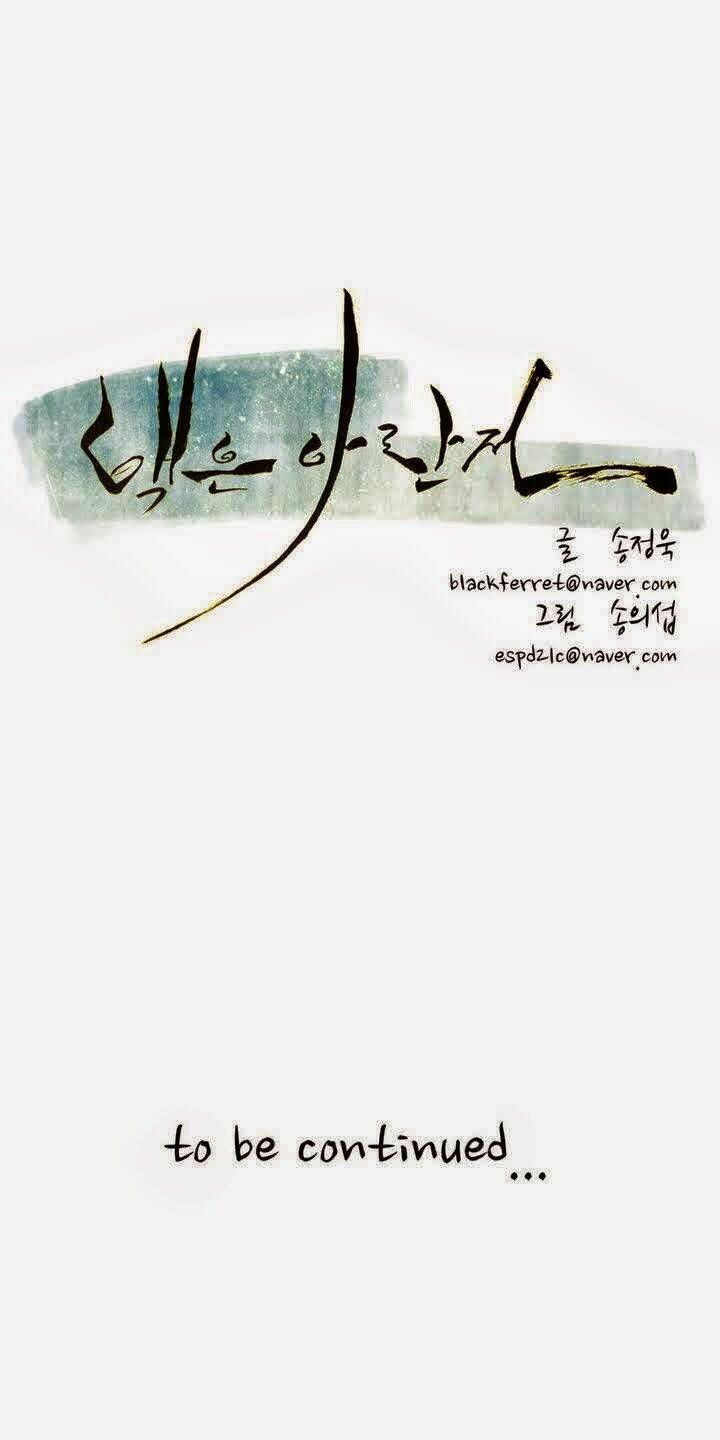 넋은 아란전
글 송정욱
blackferret@naver.com
그림 송의섭
espd21c@naver.com
to be continued...